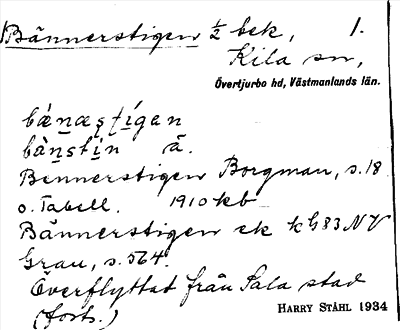 Bännerstigen ½ bek, 1.
Kila sn,
Övertjurbo hd, Västmanlands län.
bànæʂʈígen
bànstin ä.
Bennerstigen Borgman, s. 18
o. Tabell. 1910 kb
Bännerstigen ek kG83NV
Grau, s. 564.
Överflyttat från Sala stad
(forts.)
HARRY STÅHL 1934